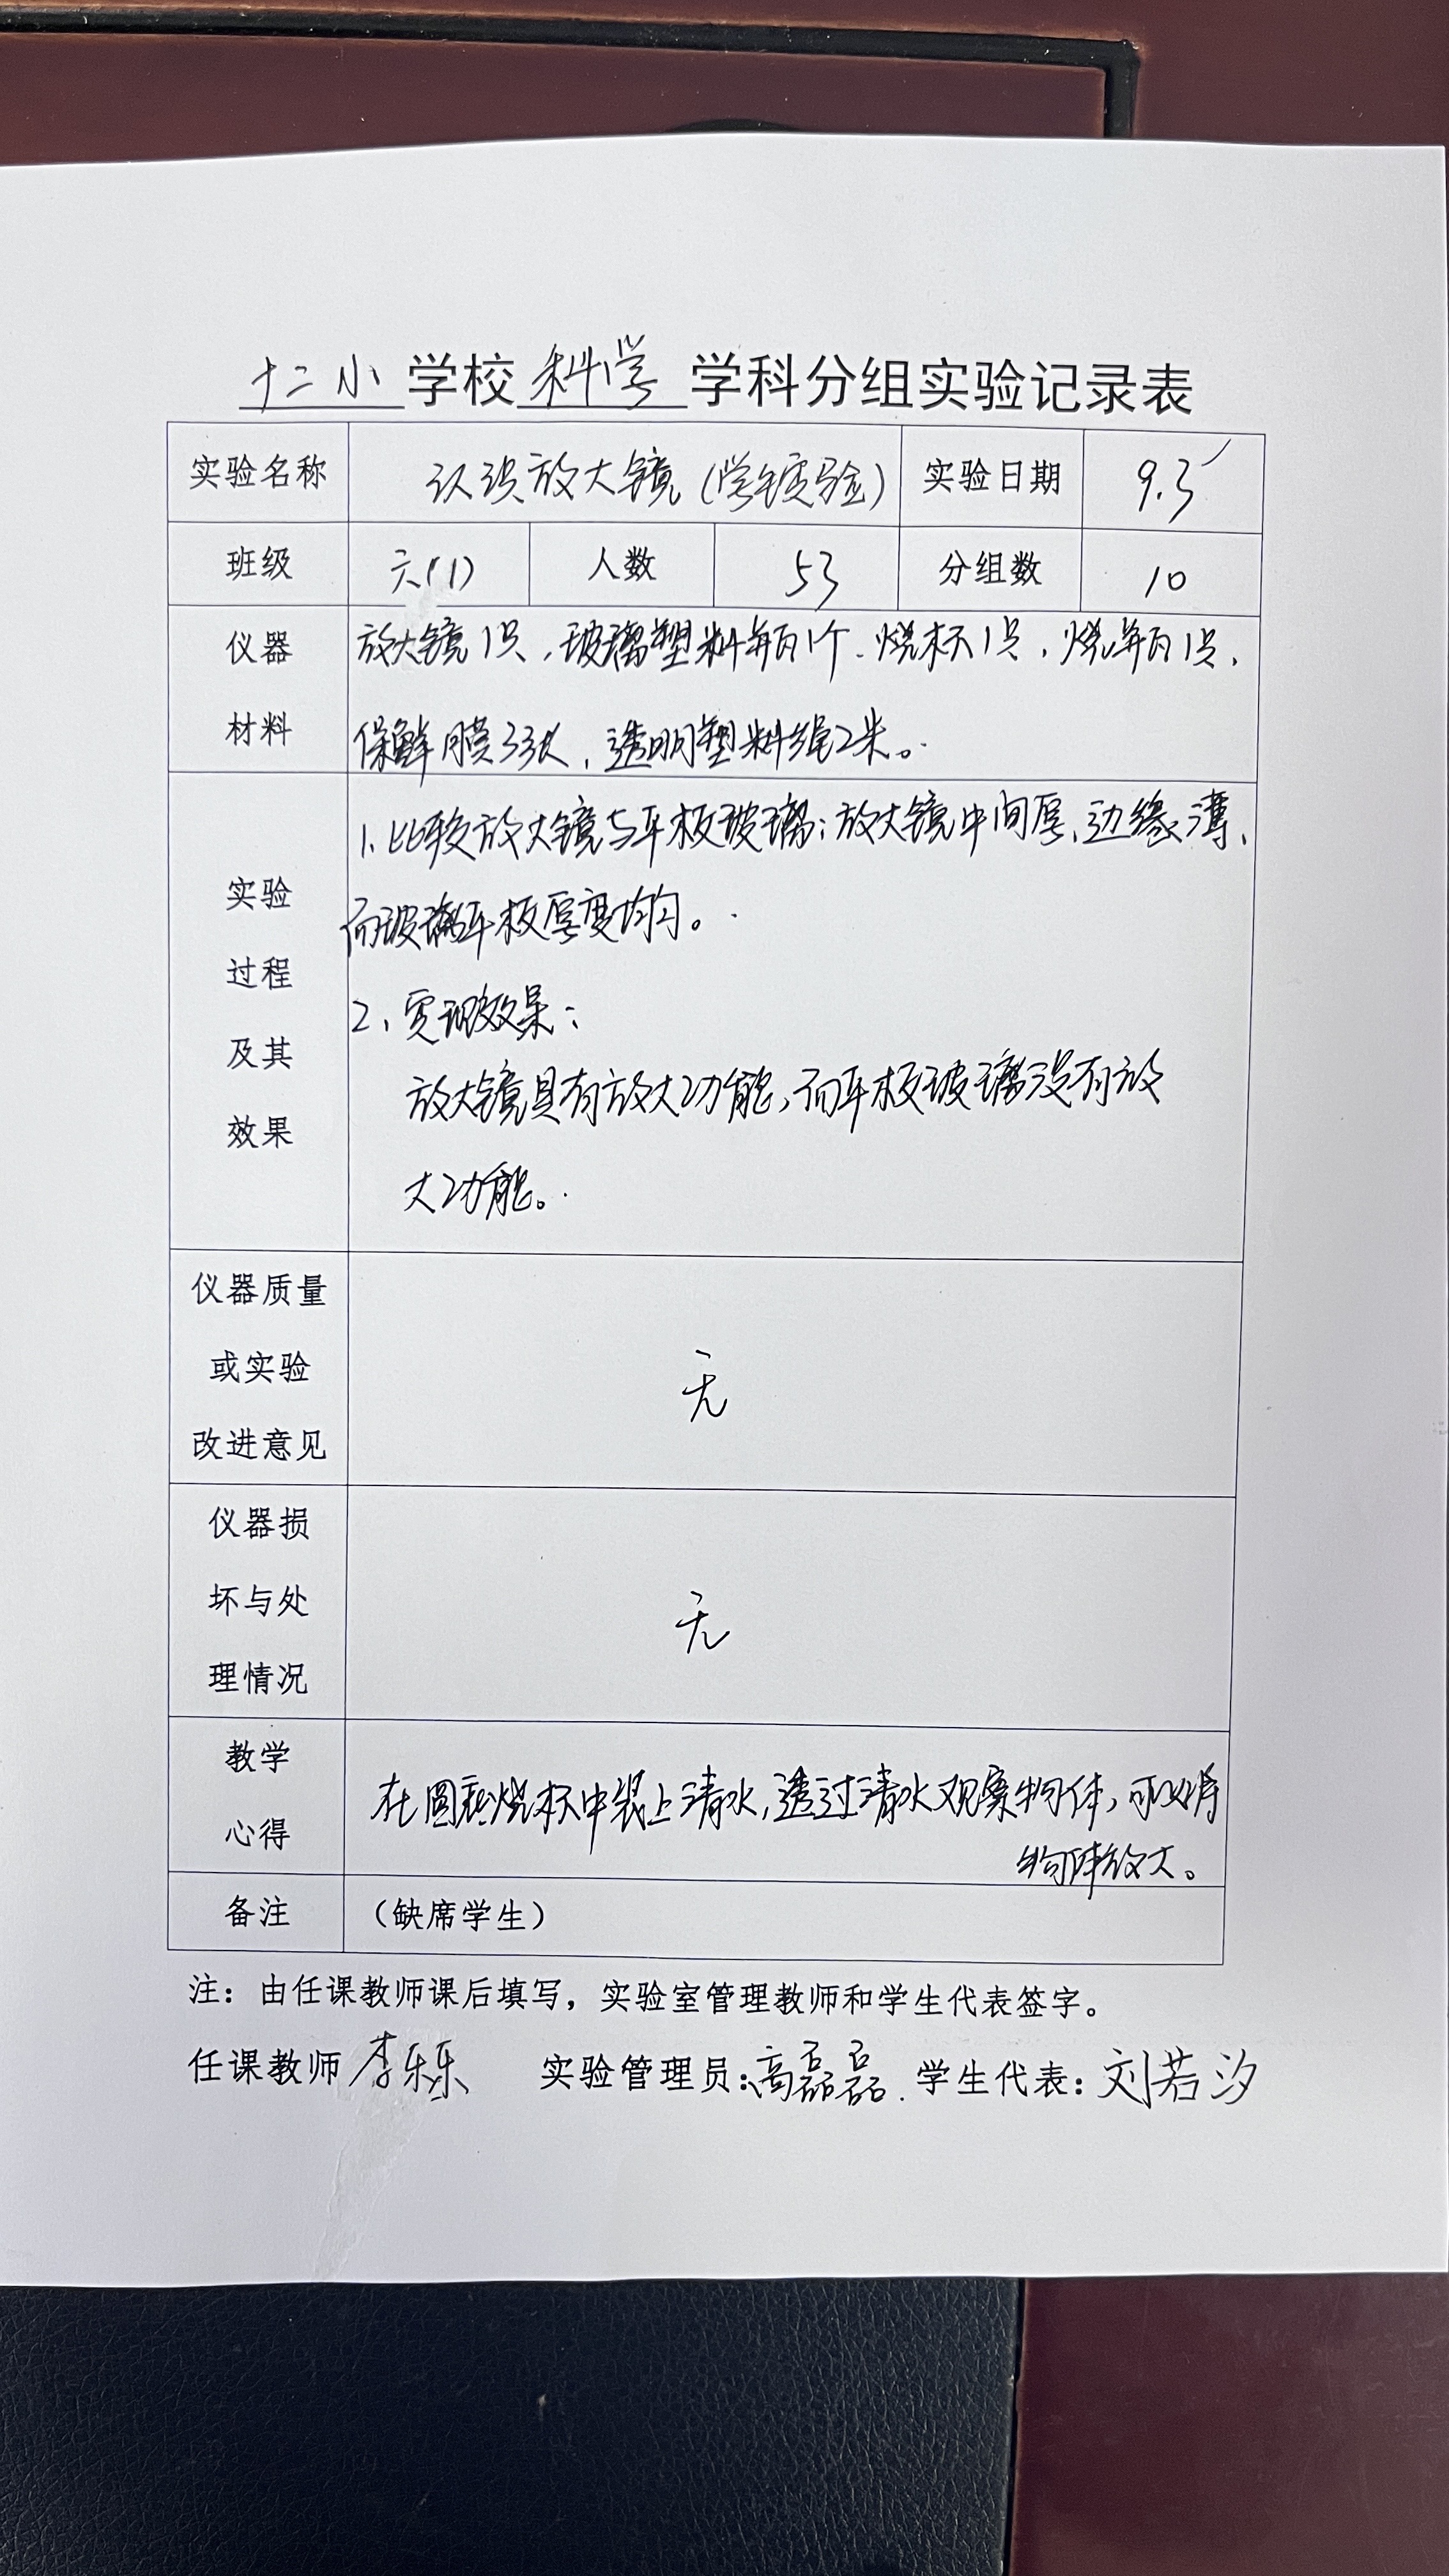 十二小 学校 科学 学科分组实验记录表
实验名称 认识放大镜(学生实验) 实验日期 9.3
班级 六(1) 人数 53 分组数 10
仪器 放大镜1只,玻璃塑料瓶1个、烧杯1只,烧瓶1只,
材料 保鲜膜3张,透明塑料绳2米。
1、比较放大镜与平板玻璃:放大镜中间厚、边缘薄、
实验
而玻璃平板厚度均匀。
过程
2、实验效果:
及其
放大镜具有放大功能,而平板玻璃没有放
效果
大功能。
仪器质量
或实验 无
改进意见
仪器损
坏与处 无
理情况
教学 在圆形烧杯中装上清水,透过清水观察物体,可以将
心得 物体放大。
备注 (缺席学生)
注:由任课教师课后填写,实验室管理教师和学生代表签字。
任课教师 李乐乐 实验管理员:高磊磊. 学生代表:刘若汐